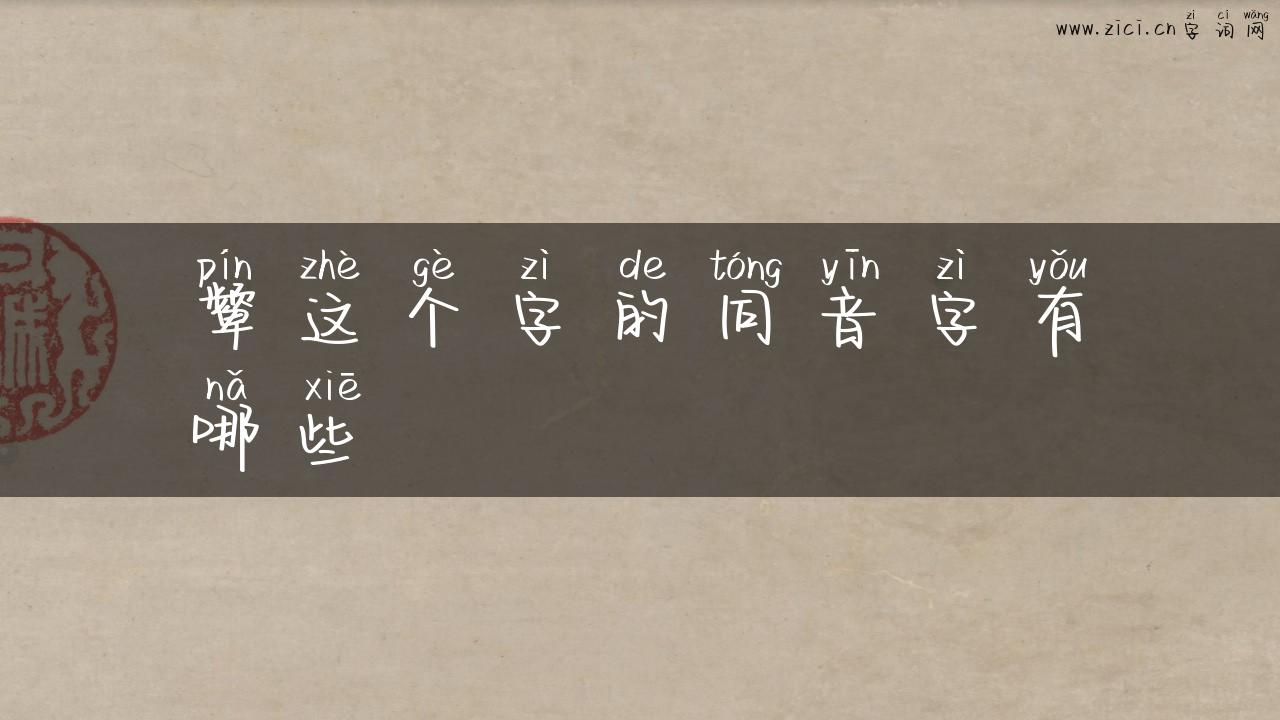 www.zici.cn zì cí wǎng 字词网
pín zhè gè zì de tóng yīn zì yǒu
颦这个字的同音字有
nǎ xiē
哪些